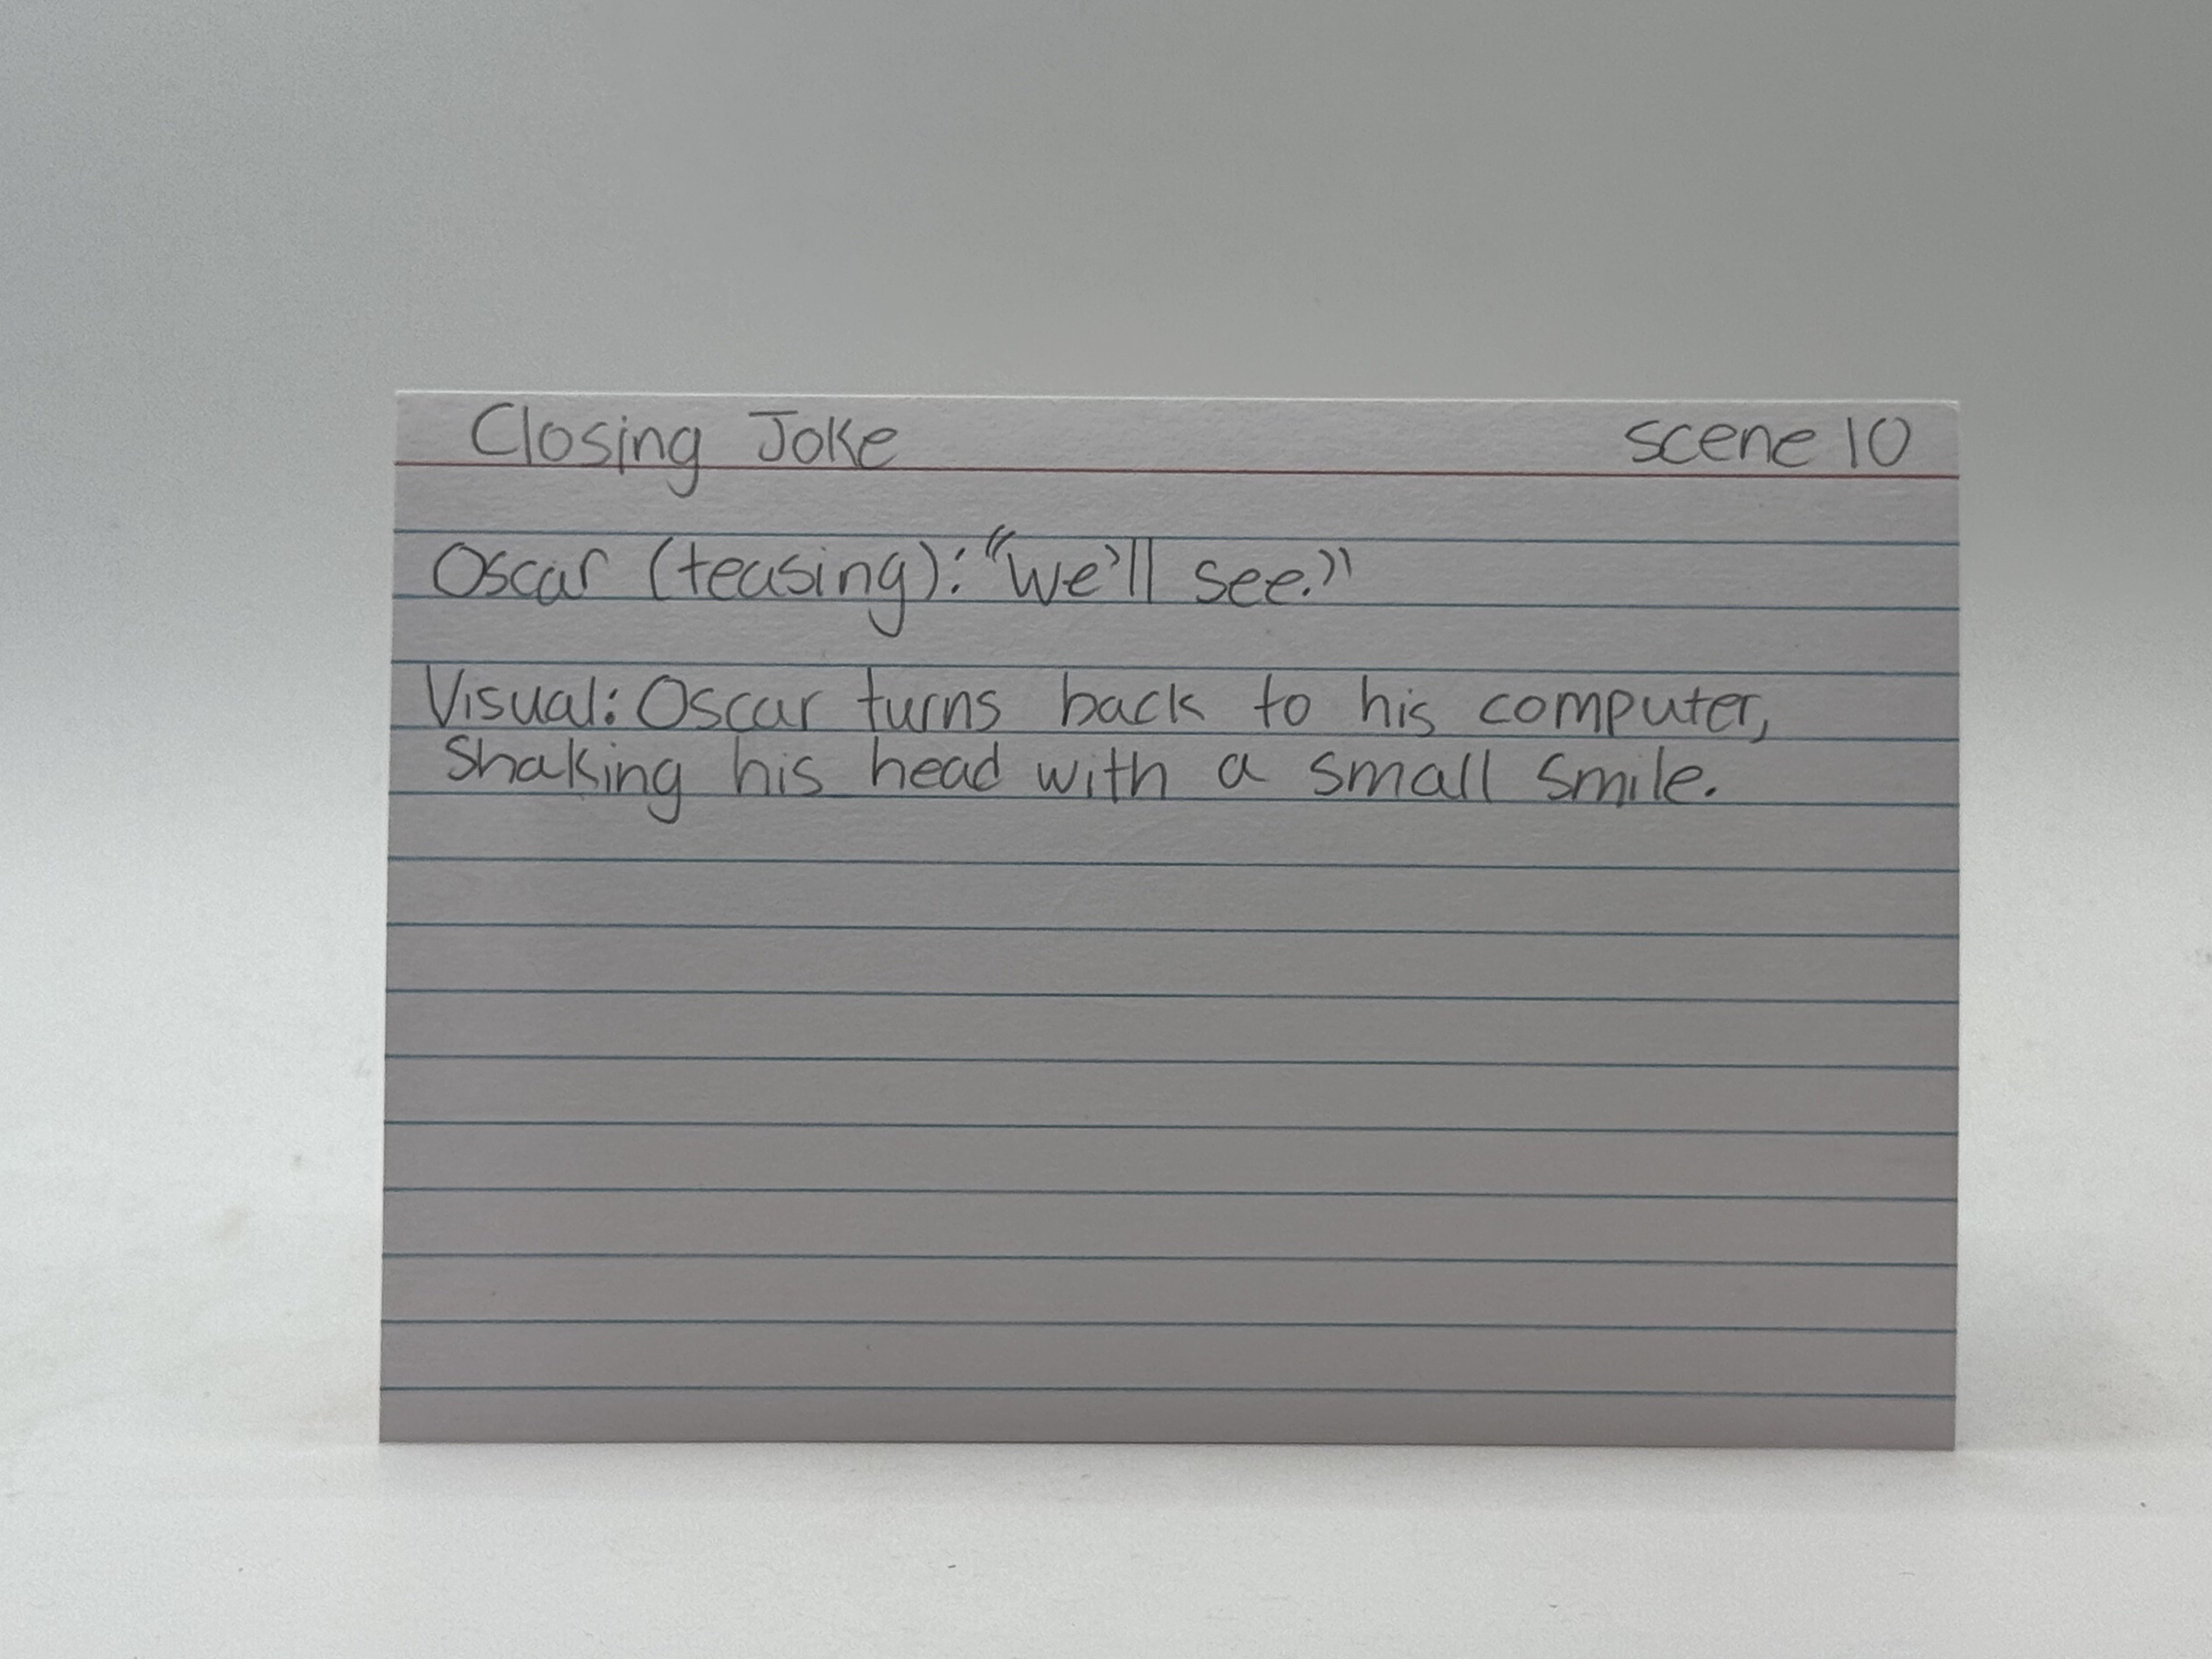 Closing Joke scene 10
Oscar (teasing): "We'll see."
Visual: Oscar turns back to his computer,
Shaking his head with a small smile.